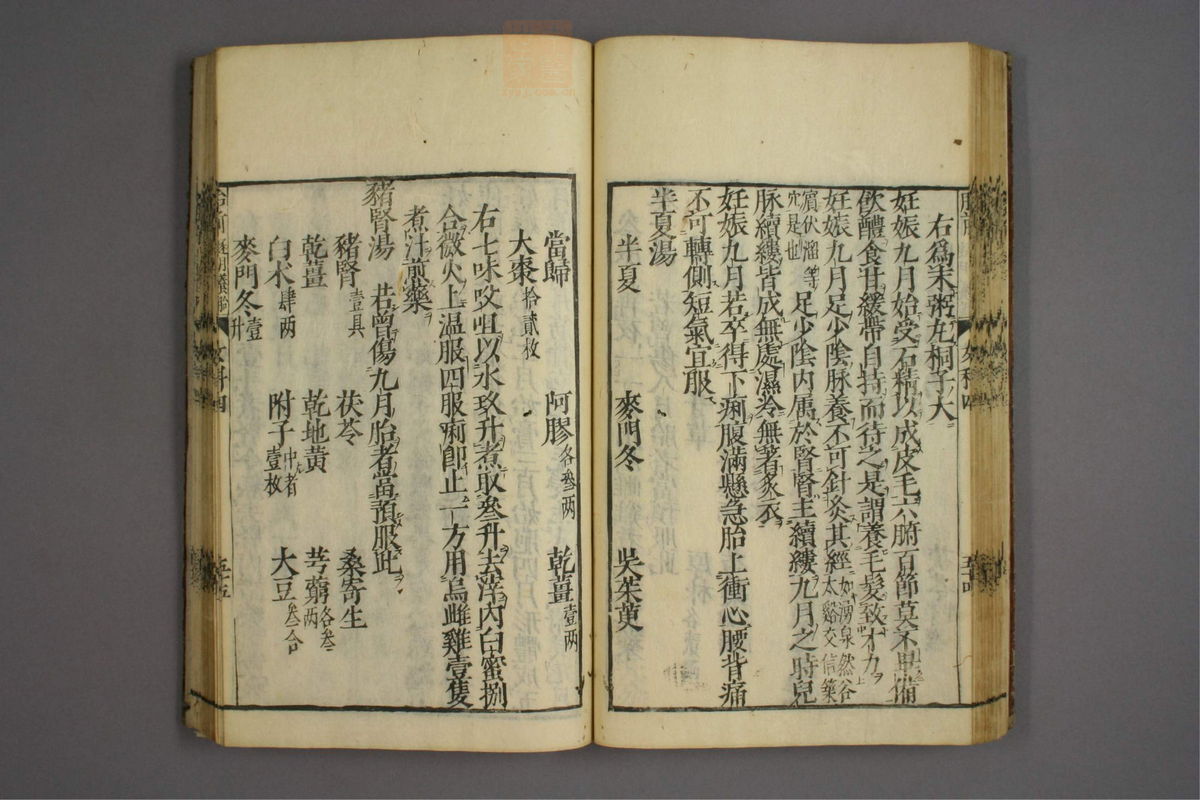 右爲末粥丸桐子大
妊娠九月始受石精以成皮毛六腑百節莫不畢備
飲醴食甘緩帶自持而待之是謂養毛髮致才力
妊娠九月足少陰脉養不可針灸其經如湧泉然谷太谿交信築
賓伏溜等穴是也足少陰内属於腎腎主續縷九月之時兒
脉續縷皆成無處濕冷無著炙衣
妊娠九月若卒得下痢腹滿懸急胎上衝心腰背痛
不可轉側短氣宜服
半夏湯
半夏 麥門冬 吳茱萸
當歸 阿膠各叄两 乾薑壹两
大棗拾貳枚
右七味㕮咀以水玖升煮取叄升去滓内白蜜捌
合微火上温服四服痢即止一方用烏雌雞壹隻
煮汁煎藥
豬腎湯 若曾傷九月胎者當預服此
豬腎壹具 茯苓 桑寄生
乾薑 乾地黄 芎藭各叄两
白朮肆两 附子中者壹枚 大豆叄合
麥門冬壹升
女科四
五十五